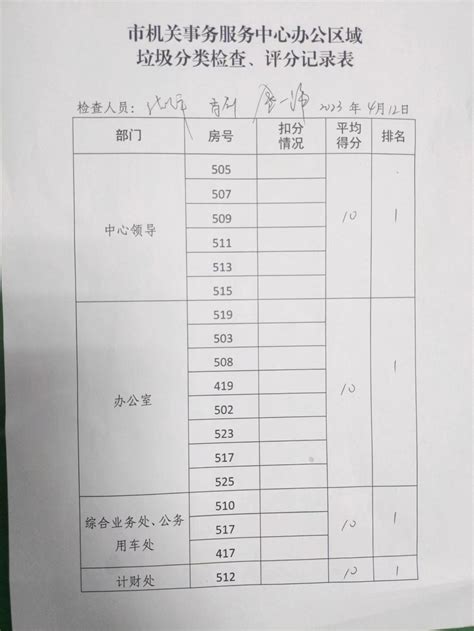 市机关事务服务中心办公区域
垃圾分类检查、评分记录表
检查人员： 2023 年 4月12日
部门 房号 扣分情况 平均得分 排名
中心领导 505 10 1
507
509
511
513
515
办公室 519 10 1
503
508
419
502
523
517
525
综合业务处、公务用车处 510 10 1
517
417
计财处 512 10 1